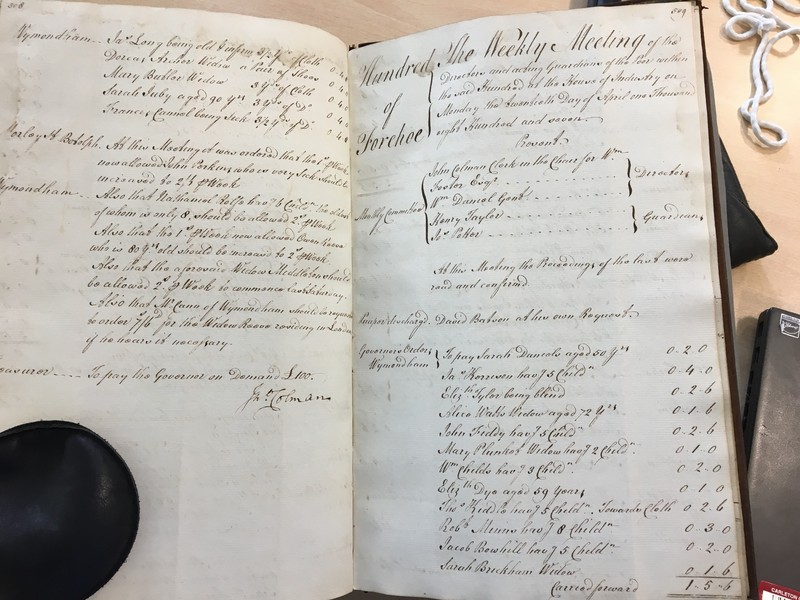 508
Wymondham Jas Long being old & infirm 3½ yds of Cloth 0.4
Dorcas Archer Widow a Pair of Shoes 0.4
Mary Barber Widow 3 yds of Cloth
Sarah Juby aged 90 Yrs 3 yds of Do 0.4
Frances Cannol being Sick 3½ yds of Do 0.4
Morley St Botolph. At this Meeting it was ordered that the 1s ⅌ Week
now allowed John Perkins who is very Sick should be
increased to 2/6 ⅌ Week
Wymondham Also that Nathaniel Rolfe hav'g 6 Childn the oldest
of whom is only 8, should be allowed 2s ⅌ Week
Also that the 1s ⅌ Week now allowed Owen Reeve
who is 80 Yrs old should be increas'd to 2s ⅌ Week
Also that the aforesaid Widow should
be allowed 2s ⅌ Week to commence last Saturday.
Also that Mr Cann of Wymondham should be requested
to order 7/6 for the Widow Reeve residing in London
if he hears it necessary.
Treasurer To pay the Governor on Demand £100.
Jno Colman
509
Hundred of Forehoe
The Weekly Meeting of the
Directors and acting Guardians of the Poor within
the said Hundred at the House of Industry on
Monday the twentieth Day of April one Thousand
eight Hundred and seven.
Present
John Colman Clerk in the Chair for Wm
Foster Esqr
Wm Daniel Gent Directors
Weekly Committee
Henry Taylor
Js Potter Guardians
At this Meeting the Proceedings of the last were
read and confirm'd
Pauper discharged. David Batson at his own Request.
Governor's Orders
Wymondham
To pay Sarah Daniels aged 50 Yrs 0-2-0
Jas Kerrison hav'g 5 Childn 0-4-0
Elizth Tylor being blind 0-2-6
Alice Watts Widow aged 72 Yrs 0-1-6
John Fiddy hav'g 5 Childn 0-2-6
Mary Plunket Widow hav'g 2 Childn 0-1-0
Wm Childs hav'g 3 Childn 0-2-0
Elizth Dye aged 59 Years 0-1-0
Thos Kiddle hav'g 5 Childn Towards Cloth 0-2-6
Robt Menns hav'g 8 Childn 0-3-0
Jacob Bowhill hav'g 5 Childn 0-2-0
Sarah Breckham Widow 0-1-6
Carried forward 1-5-6
CARLETON